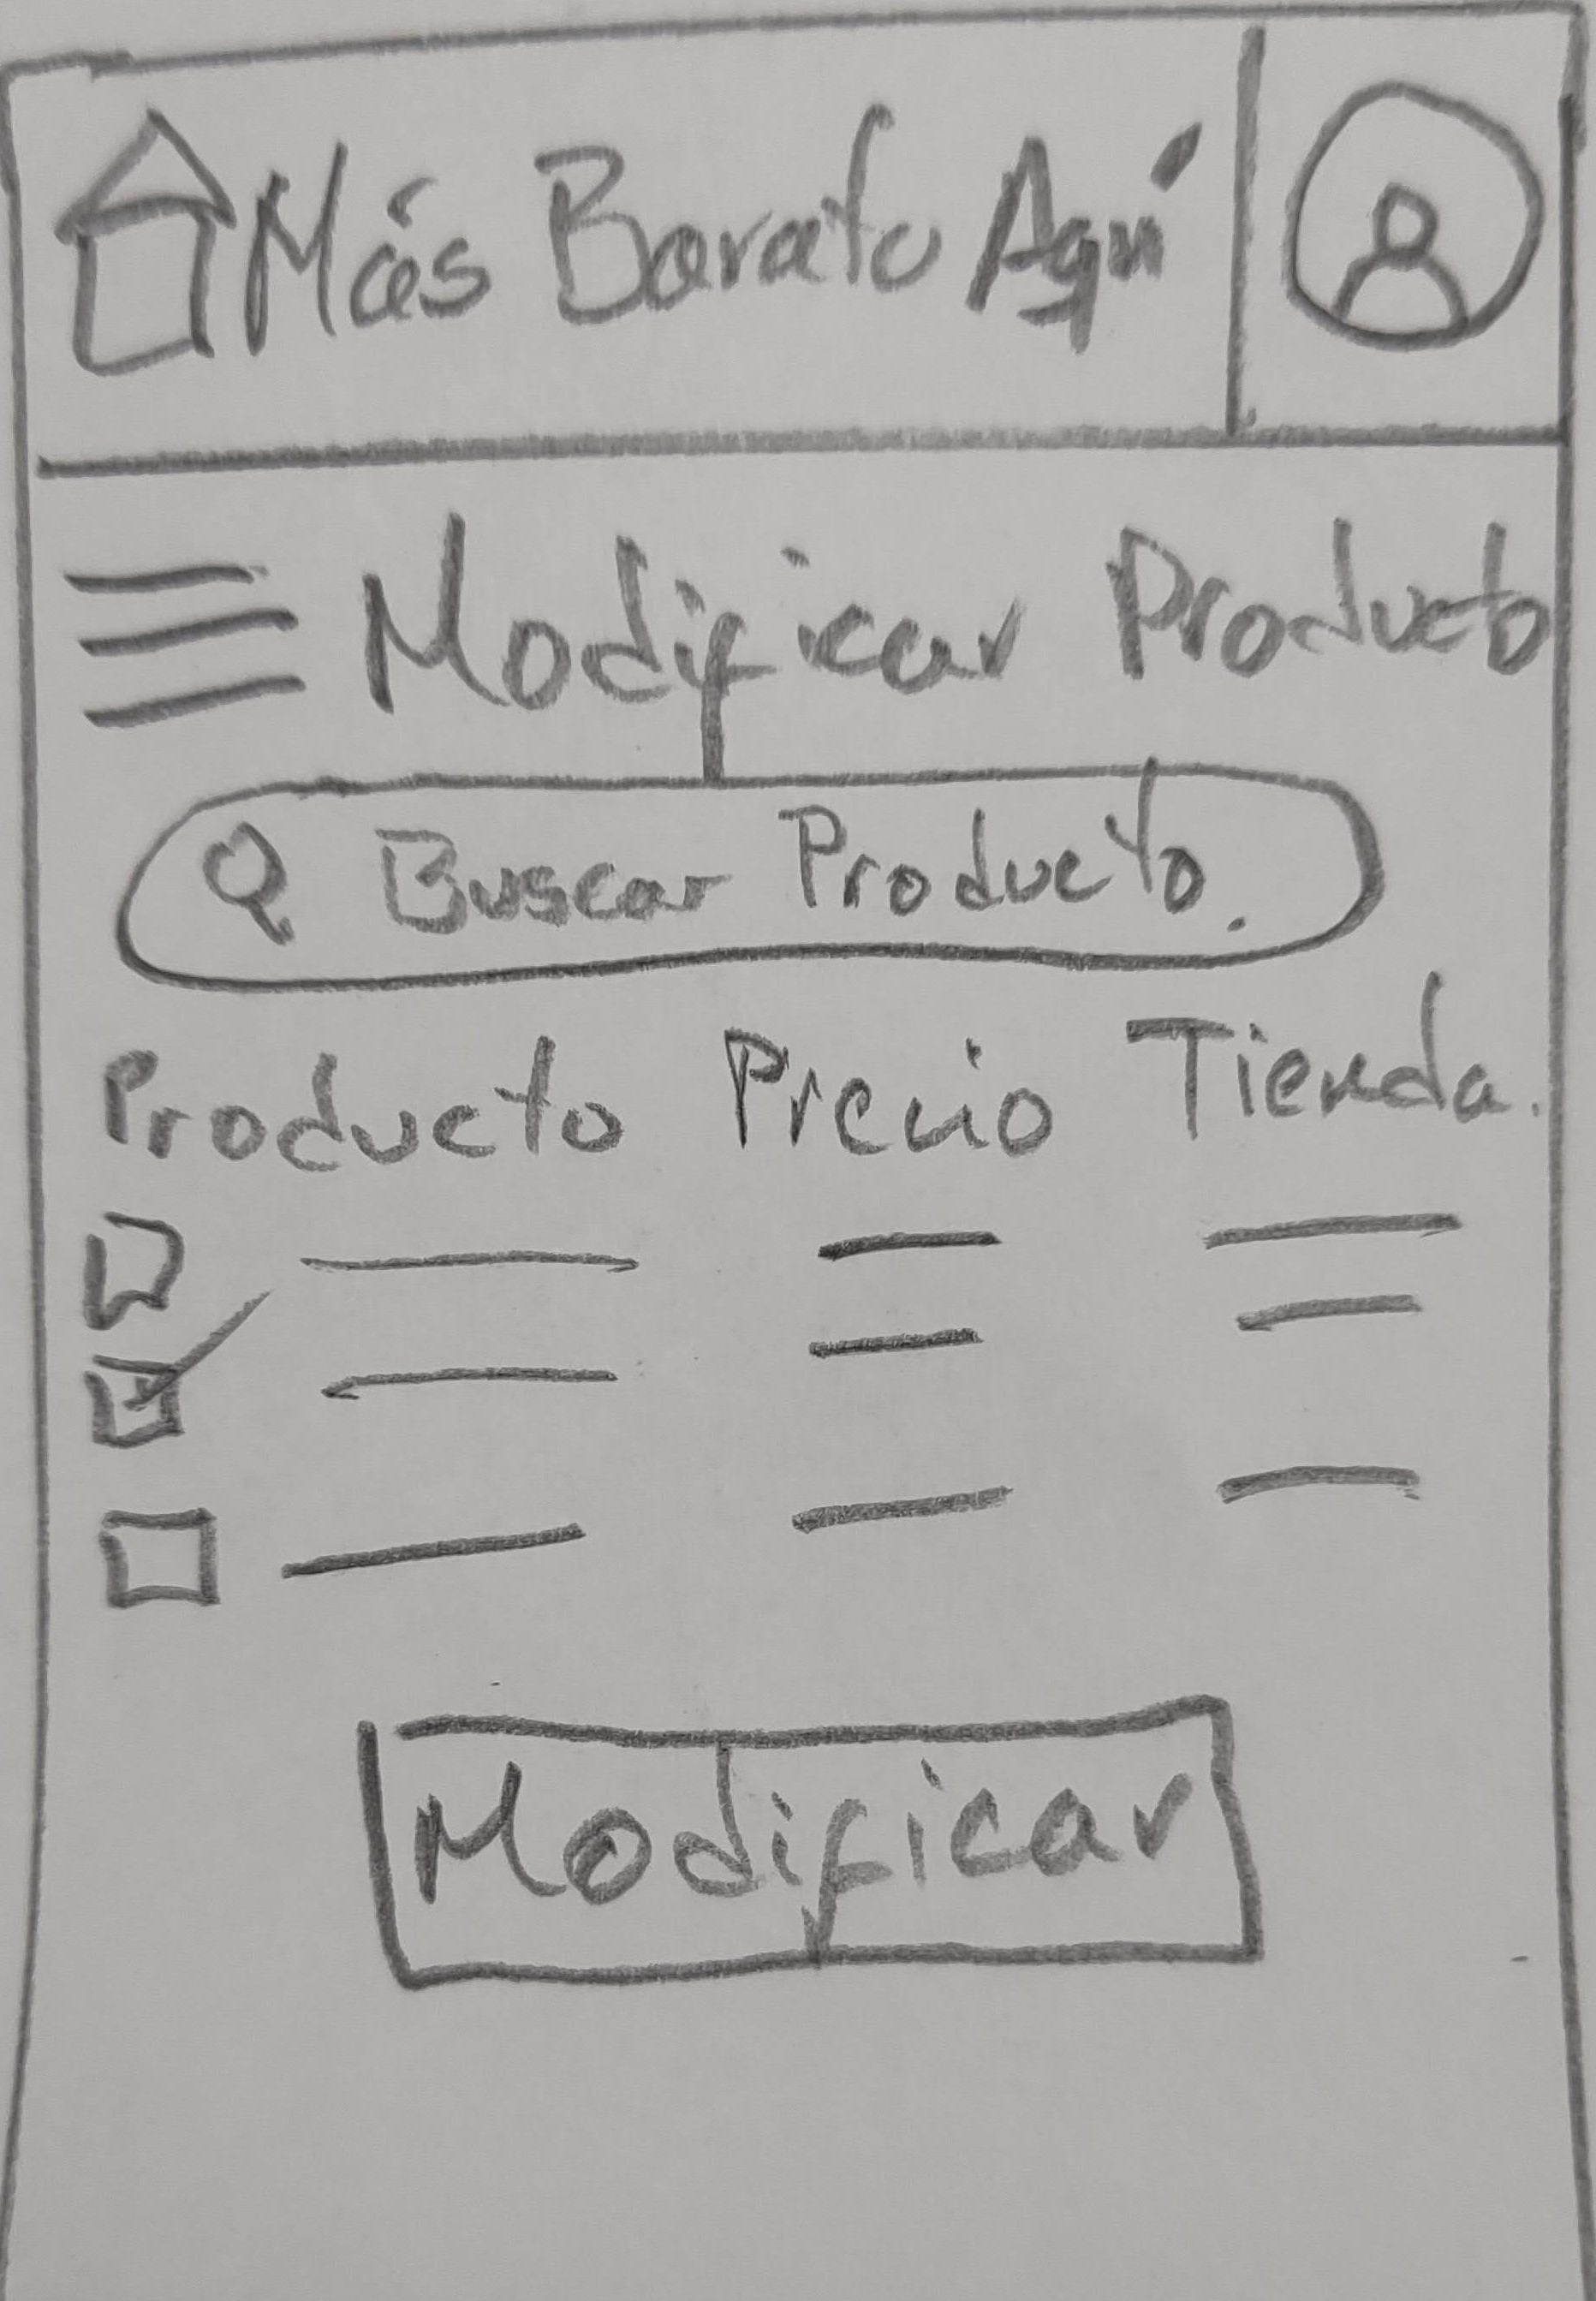 Más Barato Aquí
Modificar Producto
Buscar Producto.
Producto Precio Tienda.
Modificar